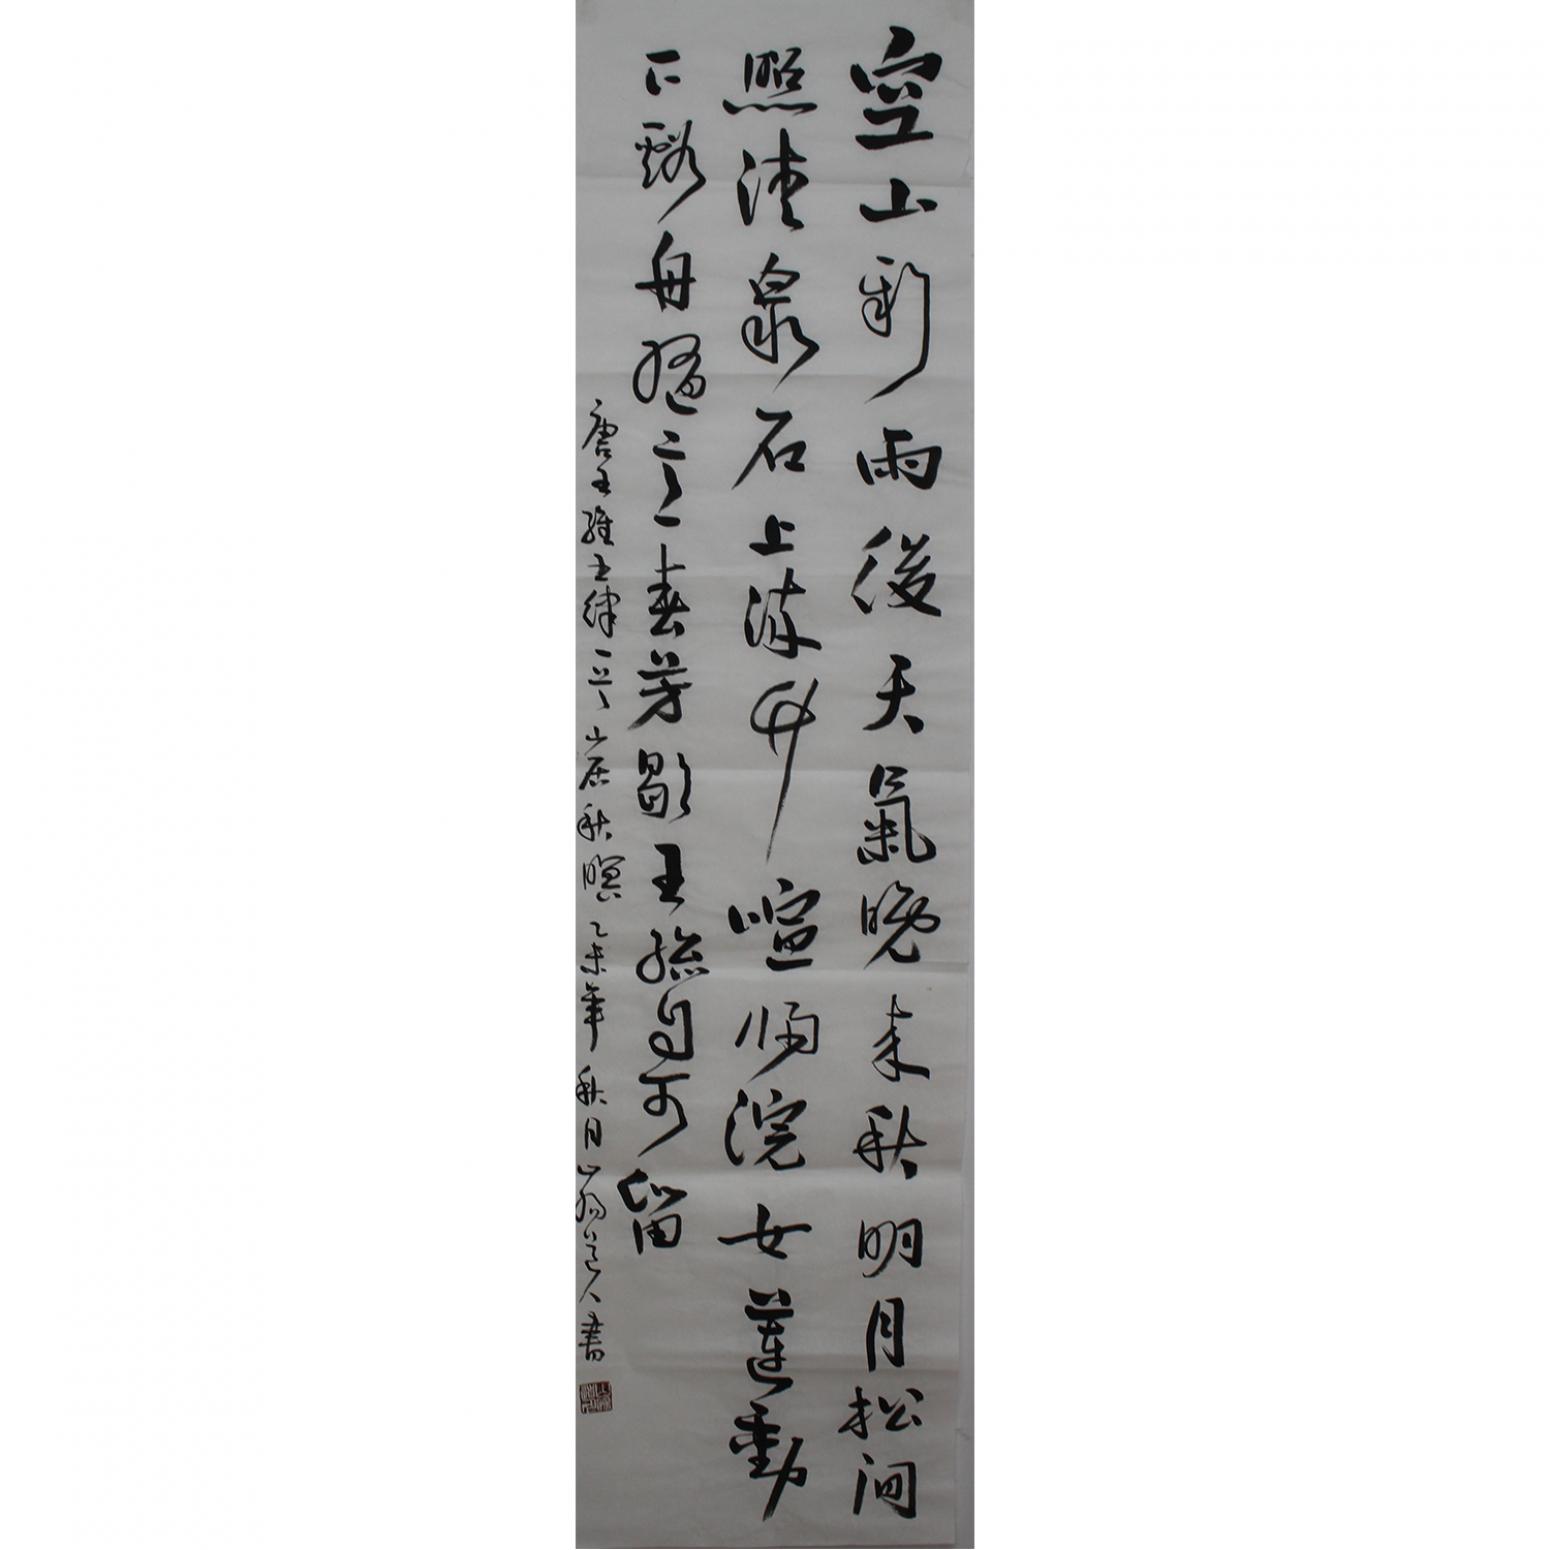 空山新雨後天氣晚来秋明月松间
照清泉石上流竹喧归浣女蓮動
下谿舟随意春芳歇王孫自可留
唐王維五律一首山居秋暝乙未年秋月山道人書